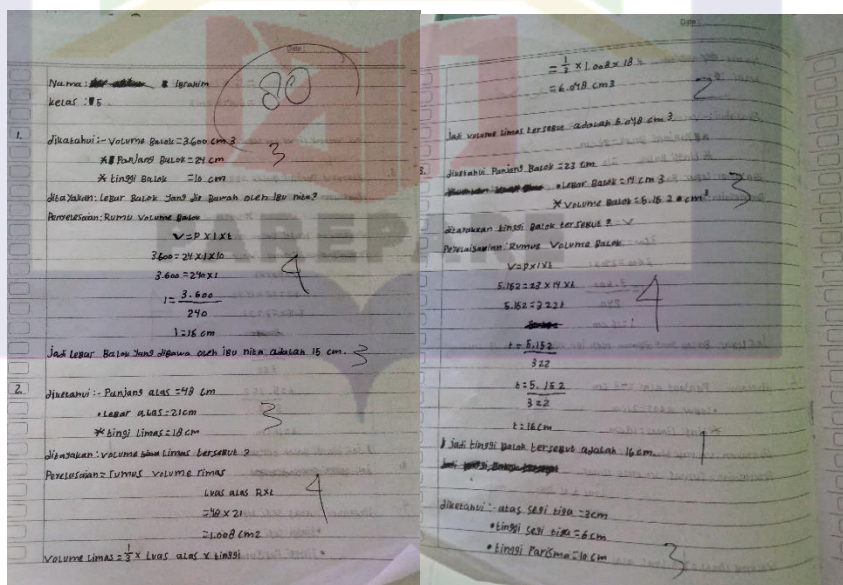 Nama: Ibrahim
Kelas: 5
80
1. dikatahui:- Volume Balok=3.600 cm 3
* Panjang Balok=24 cm
* tinggi Balok =10 cm
3
ditayakan: Lebar Balok yang di Bawah oleh ibu nita?
Penyelesaian: Rumu Volume Balok
V=P x l x t
3.600=24 x l x 10
3.600=240 x l
4
l=3.600
240
l=15 cm
Jadi Lebar Balok yang dibawa oleh ibu nita adalah 15 cm.
3
2. diketahui:- Panjang alas =48 cm
• Lebar alas=21cm
* tingi Limas=18 cm
3
ditayakan: Volume Limas tersebut?
Penyelesaian= rumus volume limas
Luas alas Pxl
=48 x 21
=1.008 cm2
4
Volume Limas=1/3 x Luas alas x tinggi
=1/3 x 1.008 x 18
=6.048 cm3
2
Jadi volume Limas tersebut adalah 6.048 cm 3
3. diketahui Panjang Balok =23 cm
• Lebar Balok=14 cm 3
* Volume Balok=5.152 cm³
3
ditanyakan tinggi Balok tersebut?
Rumus Volume Balok
V=P x l x t
5.152=23 x 14 x t
5.152=322t
4
t=5.152
322
t=5.152
322
t=16cm
Jadi tinggi Balok tersebut adalah 16 cm.
1
diketahui:- alas segi tiga =8cm
• tinggi segi tiga=6cm
• tinggi Parisma=10 cm
3
PAREPARE